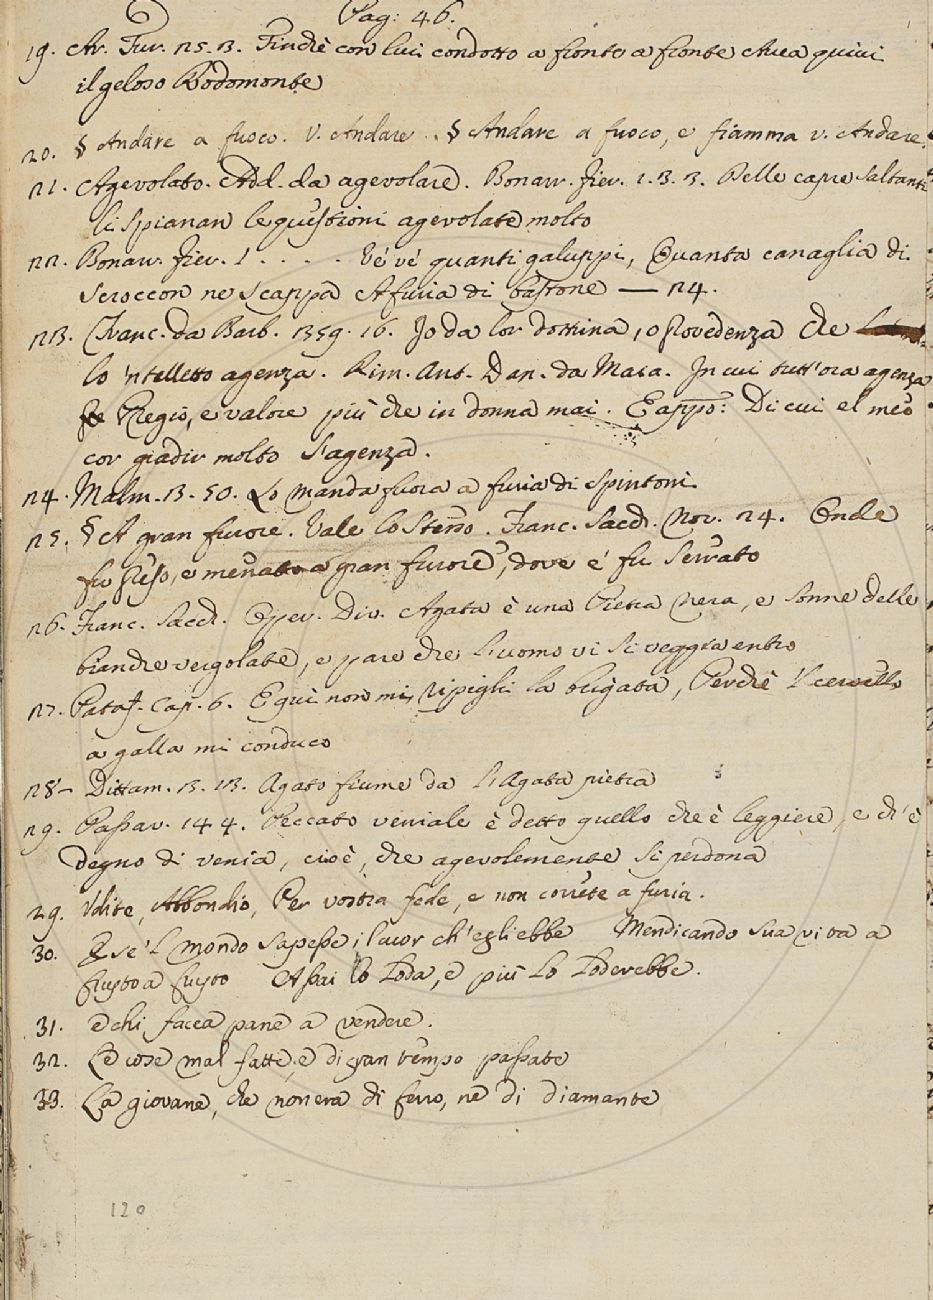 Pag: 46.
19. Ar. Fur. 25. 3. Finchè con lui condotto a fronte a fronte Avea quivi
il geloso Rodomonte
20. § Andare a fuoco. V. Andare .. § Andare a fuoco, e fiamma v. Andare.
21. Agevolato. Add. da agevolare. Bonarr. fier. 1. 3. 3. Delle capre saltanti
li spianan le quistioni agevolate molto
22. Bonarr. fier. 1 . . . . Vé vé quanti galuppi, Quanta canaglia di
scroccon ne scappa A furia di bastone — 24.
23. Franc. da Barb. 359. 16. Io da lor dottrina, o provedenza che
lo 'ntelletto agenza. Rim. Ant. Dan. da Maia. In cui tutt'ora agenza
Pregio, e valore più che in donna mai. E appo: Di cui el meo
cor gradir molto s'agenza.
24. Malm. 3. 50. Lo manda fuora a furia di spintoni.
25. § A gran furore. Vale lo stesso. Franc. Sacch. Nov. 24. Onde
fu preso, e menato a gran furore, dove e' fu serrato
26. Franc. Sacch. Oper. Div. Agata è una Pietra nera, e sonne delle
bianche vergolate, e pare che l'uomo vi si veggia entro
27. Pataf. Cap. 6. E qui non mi ripigli la brigata, Perchè 'l cervello
a galla mi conduco
28 – Dittam. 3. 13. Agato fiume da l'Agata pietra
29. Passav. 144. Peccato veniale è detto quello che è leggiere, e ch'è
degno di venia, cioè, che agevolemente si perdona
29. Udite, Abbondio, Per vostra fede, e non correte a furia.
30. E se 'l mondo sapesse il cuor ch'egli ebbe Mendicando sua vita a
frusto a frusto Assai lo loda, e più lo loderebbe.
31. e chi facea pane a vendere.
32. Le cose mal fatte, e di gran tempo passate
33. La giovane, che non era di ferro, nè di diamante
120